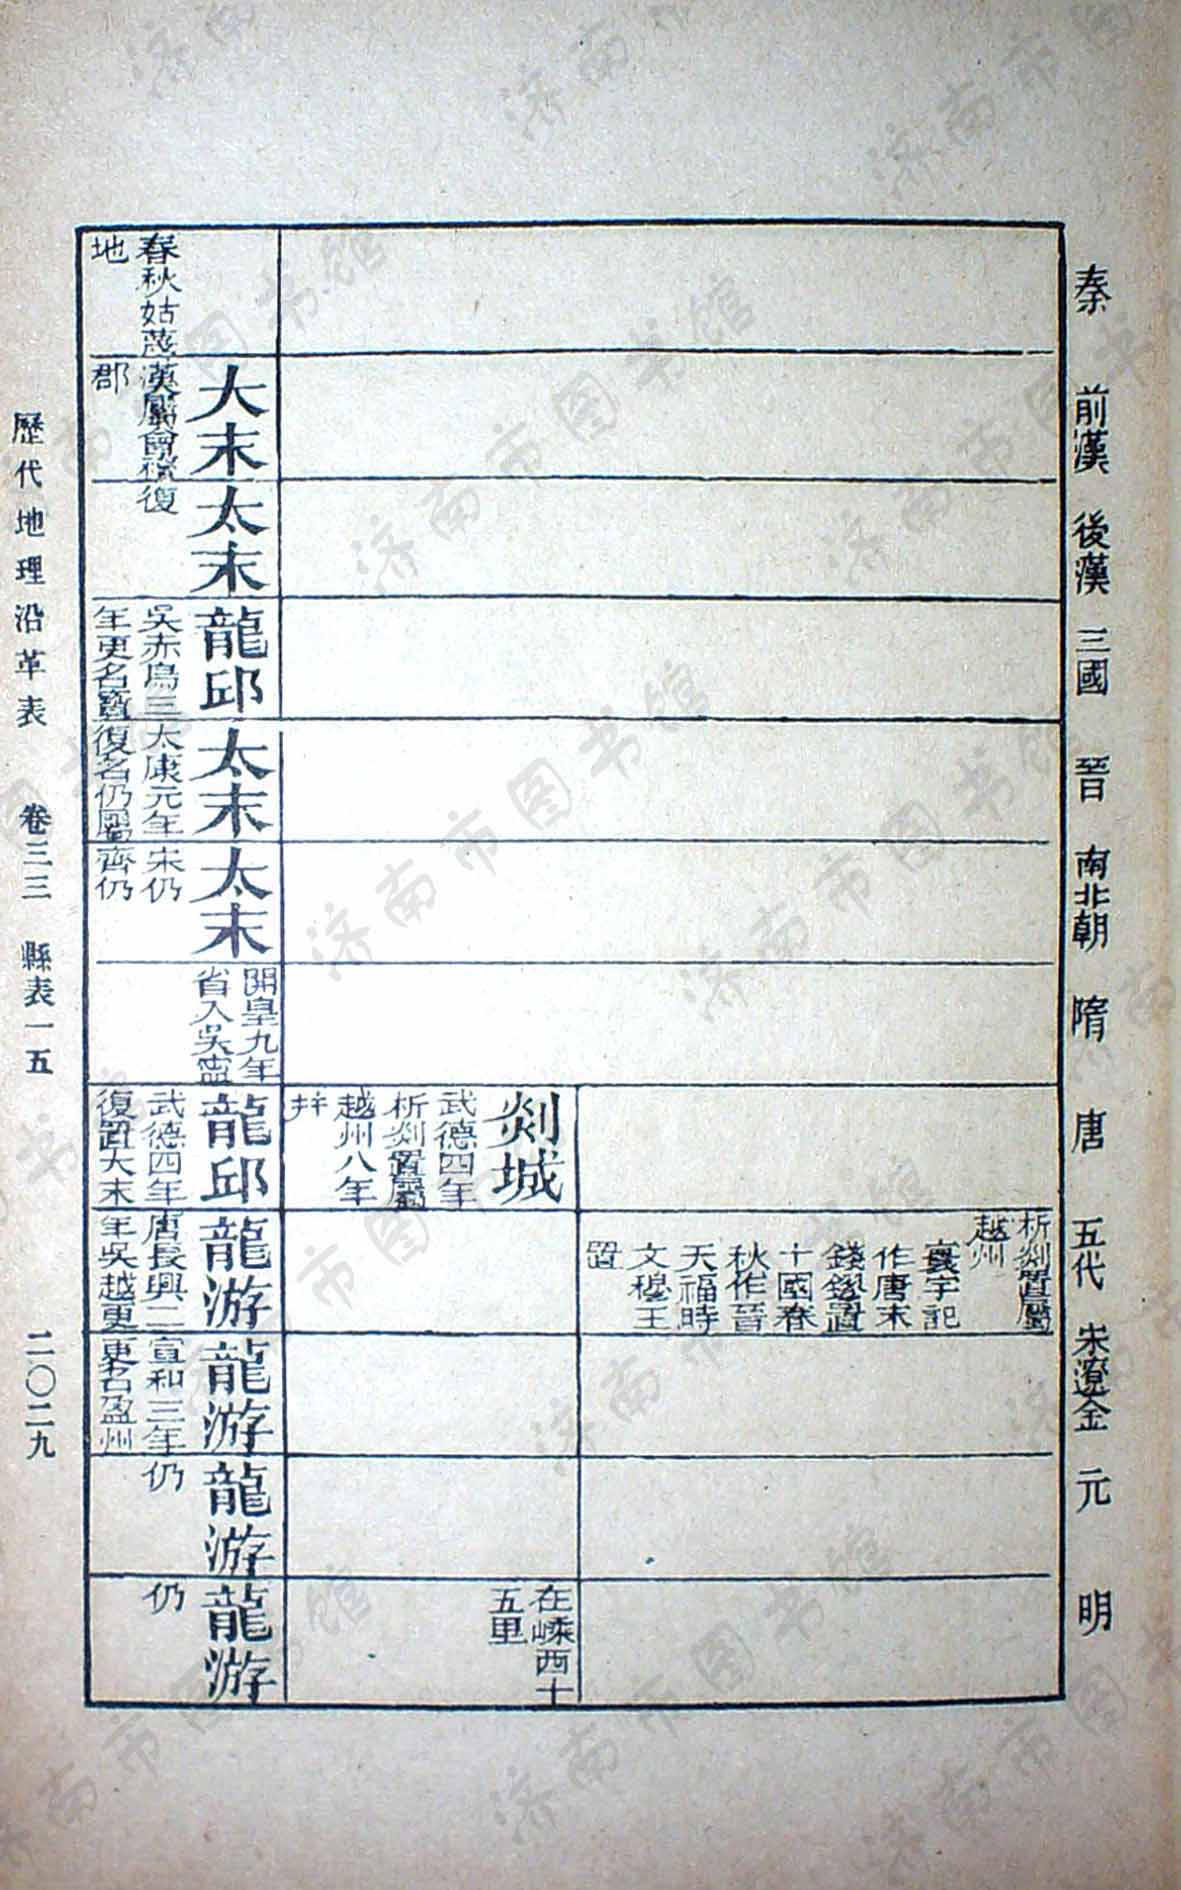 秦
前漢
後漢
三國
晉
南北朝
隋
唐
五代
宋遼金
元
明
析剡置屬
越州
寰宇記
作唐末
錢鏐置
十國春
秋作晉
天福時
文穆王
置
剡城
武德四年
析剡置屬
越州八年
并
在嵊西十
五里
春秋姑蔑
地
大末
漢屬會稽
郡
太末
復
龍邱
吳赤烏三
年更名寶
太末
太康元年
復名仍屬
太末
宋仍
齊仍
開皇九年
省入吳寧
龍邱
武德四年
復置太末
龍游
唐長興二
年吳越更
龍游
宣和三年
更名盈州
龍游
仍
龍游
仍
歷代地理沿革表 卷三三 縣表一五 二〇二九
济南市图书馆